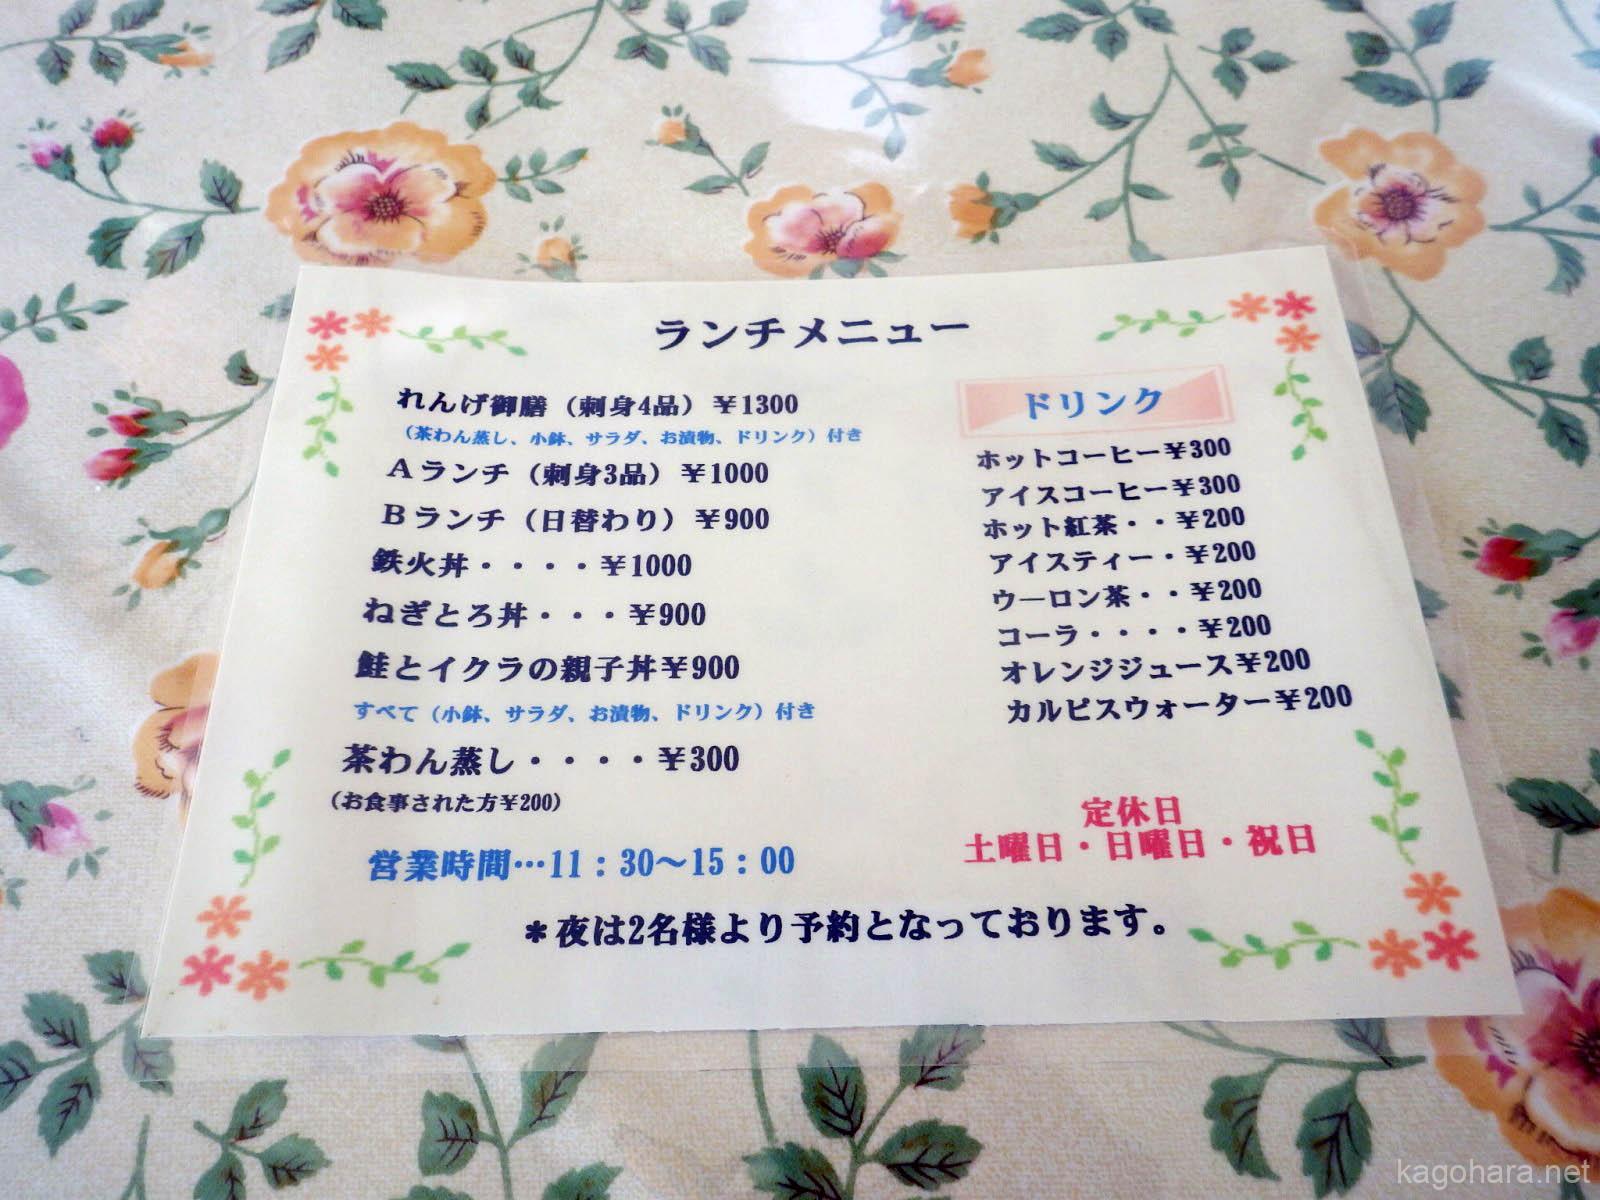 ランチメニュー
れんげ御膳（刺身4品）￥1300
（茶わん蒸し、小鉢、サラダ、お漬物、ドリンク）付き
Aランチ（刺身3品）￥1000
Bランチ（日替わり）￥900
鉄火丼・・・・￥1000
ねぎとろ丼・・・￥900
鮭とイクラの親子丼￥900
すべて（小鉢、サラダ、お漬物、ドリンク）付き
茶わん蒸し・・・・￥300
（お食事された方￥200）
ドリンク
ホットコーヒー￥300
アイスコーヒー￥300
ホット紅茶・・￥200
アイスティー・￥200
ウーロン茶・・￥200
コーラ・・・・￥200
オレンジジュース￥200
カルピスウォーター￥200
定休日
土曜日・日曜日・祝日
営業時間…11：30～15：00
＊夜は2名様より予約となっております。
kagohara.net